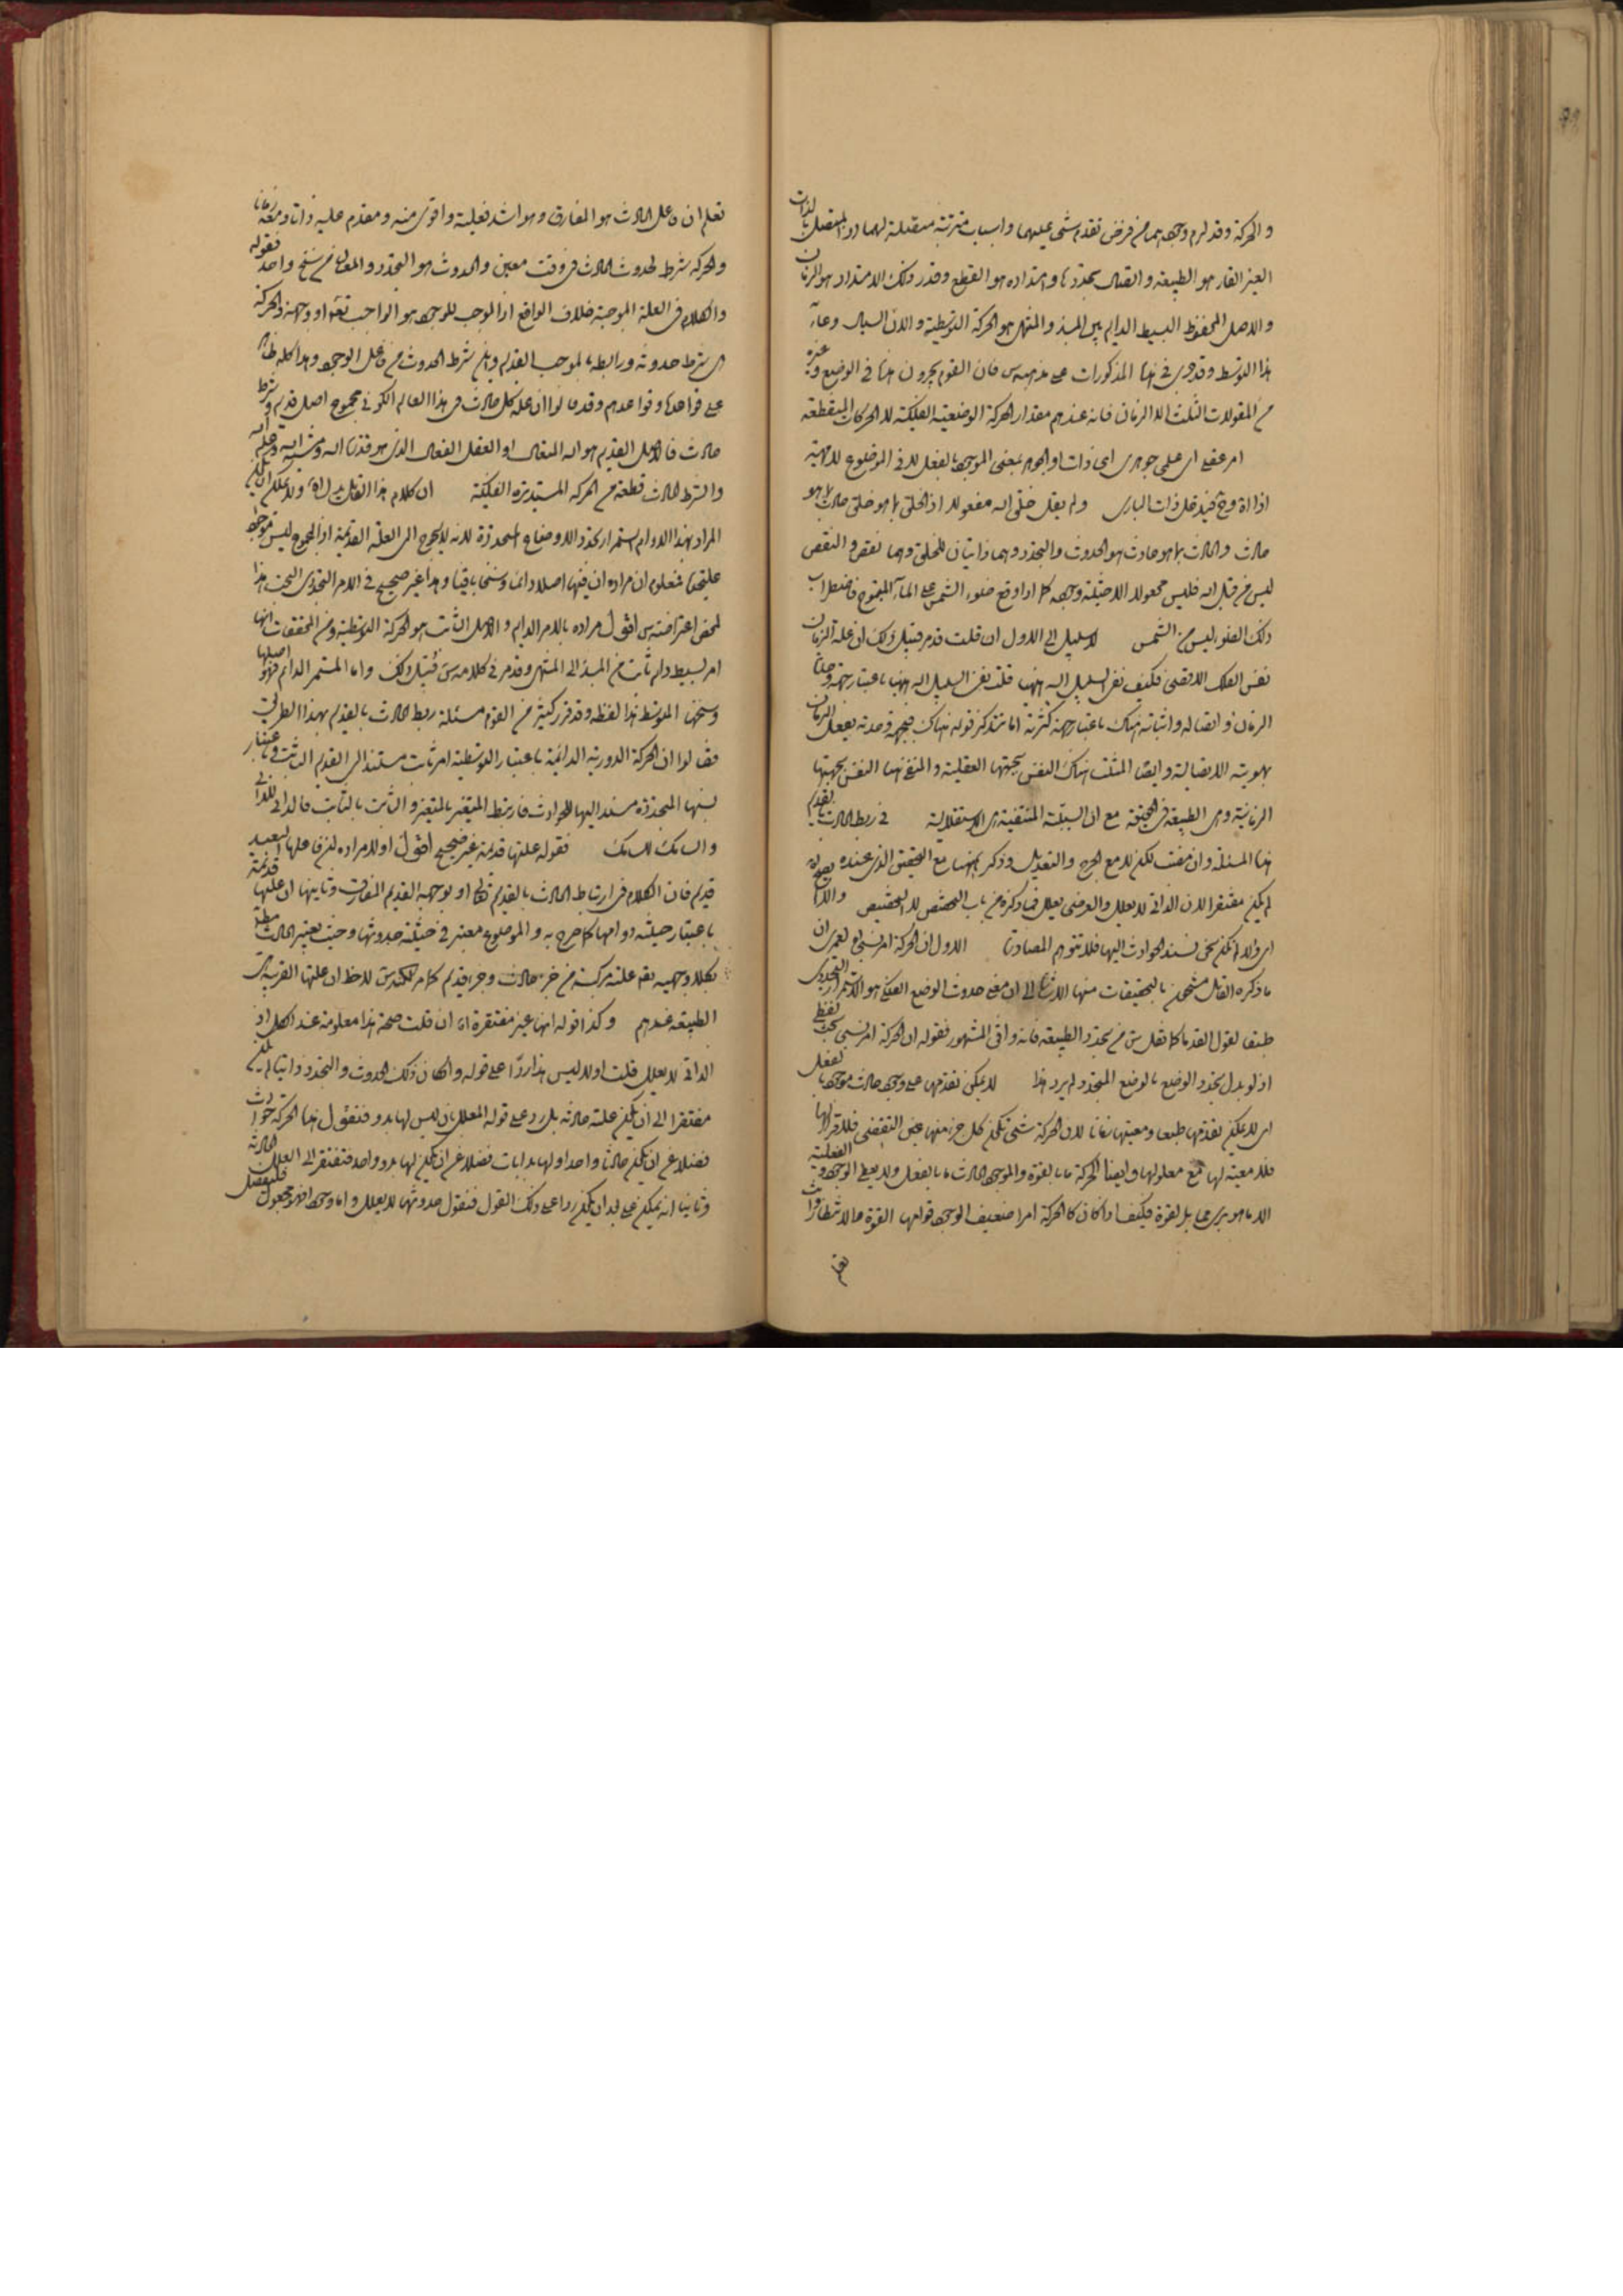 و الحركة وقد لزم وجودهما من فرض تقدم شئ عليهما واسباب مترتبة متقبلة لهما دون المتصل بالذات
الغير القار هو الطبيعة و اتصال تجددها و امتداده هو القطع وقدر ذلك الامتداد هو الزمان
والاصل المحفوظ البسيط الدايم بين المبدء والمنتهى هو الحركة التوسطية و الان السيال وعاء
هذا التوسط وقد جرى في هذا المذكورات على مذهب س فان القوم يجرون هذا في الوضع وغيره
من المقولات الثلث الا الزمان فانه عندهم مقدار الحركة الوضعية الفلكية لا الحركات المنقطعة
امر عقلي اى على جوهرى اى ذات او الجوهر بمعنى الموجود بالفعل لا في الموضوع لا المهية
اذا ... ذات البارى ولم يقل خلق الله مفعولا اذ الخلق بما هو خلق حادث بما هو
حادث و الحادث بما هو حادث هو الحدوث والتجدد وهما ذاتيان للخلق وهما نقص و النقص
ليس من قبل الله فليس مجعولا الا حيثية وجوده كما اذا وقع ضوء الشمس على الماء المتموج فاضطراب
ذلك الضوء ليس من الشمس لا سبيل الى الاول ان قلت قد مر قبيل ذلك ان علة الزمان
نفس الفلك الاقصى فكيف نفى السبيل اليه ههنا قلت نفى السبيل اليه ههنا باعتبار جهة وحدة
الزمان و اتصاله و اثباته هناك باعتبار جهة كثرته اما تتذكر قوله هناك فبجهة وحدته يفعل الزمان
بهويته الاتصالية و ايضا المثبت هناك النفس بجهتها العقلية و المنفى هنا النفس بجهتها
الزمانية وهى الطبيعة في الحقيقة مع ان السببية المنتفية هى الاستقلالية في ربط الحادث بالقديم
هذا المسئلة وان مضت لكن لا مع الجرح والتعديل وذكر ههنا مع التحقيق الذى عنده بقوله
لم يكن مفتقرا لان الذاتى لا يعلل والعرضى يعلل فما ذكره من باب التخصص لا التخصيص والا
اى والا لم يكن حتى تستند الحوادث اليها فلا تتوهم المصادرة الاول ان الحركة امر نسبى لعمرى ان
ما ذكره القائل مشحون بالتحقيقات منها الاشارة الى ان معنى حدوث الوضع الفلكى هو الاستمرار التجددى
طبقا لقول القدماء كما نقل س من تجدد الطبيعة فانه وافق المشهور فقوله ان الحركة امر نسبى بحث لفظى
اذ لو بدل تجدد الوضع بالوضع المتجدد لم يرد هذا لا يمكن تقدمها على وجود حادث موجود بالفعل
اى لا يمكن تقدمها طبعا ومعيتها زمانا لان الحركة شئ يكون كل جزء منها عين التقضى فلا قرار لها
فلا معية لها مع معلولها و ايضا الحركة ما بالقوة والموجود الحادث ما بالفعل ولا يعطى الوجود والفعلية
الا ما هو برى مما بالقوة فكيف اذا كان كالحركة امرا ضعيف الوجود قوامها القوة
تعلم
تعلم ان فاعل الحادث هو المفارق وهو اشد فعلية واقوى منه ومقدم عليه ذاتا ومعه زمانا
والحركة شرط لحدوث الحادث في وقت معين والحدوث هو التجدد والمعلول من سنخ واحد فقوله
والكلام في العلة الموجبة خلاف الواقع اذ الموجب للوجود هو الواجب تعالى او وجهه والحركة
هى شرط حدوثه و رابطه بالموجب القديم واين شرط الحدوث من فاعل الوجود وهذا كله ظاهر
على قواعدنا وقواعدهم وقد قالوا ان علة كل حادث في هذا العالم الكونى مجموع اصل قديم وشرط
حادث فالاصل القديم هو الله المتعال او العقل الفعال الذى هو قدرة الله ومشية الله وعلم الله
والشرط الحادث قطعة من الحركة المستديرة الفلكية ان كلام هذا القائل يدل اه ولا يمكن ان يكون
المراد بهذا الدوام استمرار تجدد الاوضاع المتجددة لانه لا يحوج الى العلة القديمة اذ المجموع ليس بموجود
عليحدة فمعلوم ان مراده ان فيها اصلا دائما وسنخا باقيا وهذا غير صحيح في الامر التجددى البحت هذا
ملخص اعتراضه س اقول مراده بالامر الدايم و الاصل الثابت هو الحركة التوسطية ومن المحققات انها
امر بسيط دايم ثابت من المبدء الى المنتهى وقد مر في كلامه س قبيل ذلك واما المستمر الدائم فهو اصلها
وسنخها المتوسط هذا لفظه وقد قرر كثير من القوم مسئلة ربط الحادث بالقديم بهذا الطريق
فقالوا ان الحركة الدورية الدائمة باعتبار التوسطية امر ثابت مستند الى القديم الثابت وباعتبار
نسبها المتجددة مستند اليها الحوادث فارتبط المتغير بالمتغير و الثابت بالثابت فالدانى للدانى
والسامك للسامك فقوله علتها قديمة غير صحيح اقول اولا مراده ان فاعلها البعيد
قديم فان الكلام في ارتباط الحادث بالقديم تعالى او بوجهه القديم المفارق وثانيها ان علتها قديمة
باعتبار حيثية دوامها كما صرح به و الموضوع معتبر في حيثية حدوثها وحيث يعتبر الحادث
بكلا وجهيه يقول علته مركبة من جزء حادث وجزء قديم كما مر لكنه س لاحظ ان علتها القريبة هى
الطبيعة عندهم وكذا قوله انها غير مفتقرة اه ان قلت صحة هذا معلومة عند الكل اذ
الذاتى لا يعلل قلت اولا ليس هذا ردا على قوله و لما كان ذلك الحدوث والتجدد ذاتيا لم يكن
مفتقرا الى ان يكون علته حادثة بل رد على قوله المعلل بان ليس لها بدو فنقول هذا الحركة حوادث
فضلا عن ان يكون حادثا واحدا ولها بدايات فضلا عن ان يكون لها بدو واحد فتفتقر الى العلل الحادثة
وثانيا انه يمكن على بعد ان يكون ردا على ذلك القول فنقول حدوثها لا يعلل و اما وجودها فهو مجعول